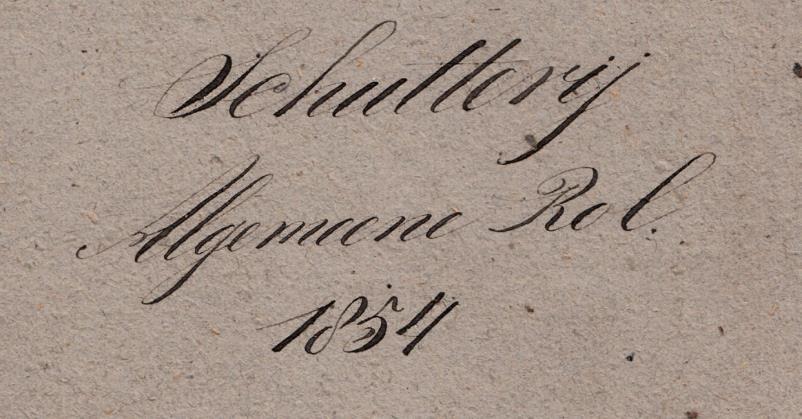 Schutterij
Algemeene Rol.
1854